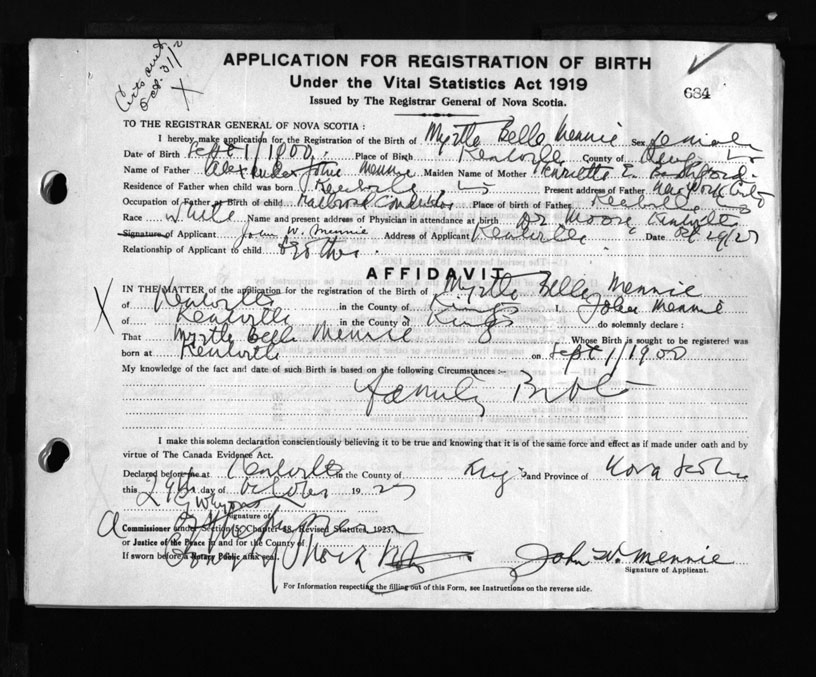 Oct. 31/2
APPLICATION FOR REGISTRATION OF BIRTH
Under the Vital Statistics Act 1919
684
Issued by The Registrar General of Nova Scotia.
TO THE REGISTRAR GENERAL OF NOVA SCOTIA :
I hereby make application for the Registration of the Birth of Myrtle Belle Mennie Sex female
Date of Birth Sept 1/1900. Place of Birth Kentville County of Kings
Name of Father Alexander John Mennie Maiden Name of Mother Henrietta E.
Residence of Father when child was born Kentville Present address of Father New York City
Occupation of Father at birth of child Railroad Conductor Place of birth of Father
Race White Name and present address of Physician in attendance at birth Dr Moore Kentville
Signature of Applicant John W. Mennie Address of Applicant Kentville Date Oct 29/27
Relationship of Applicant to child Brother
AFFIDAVIT
IN THE MATTER of the application for the registration of the Birth of Myrtle Belle Mennie
of Kentville in the County of Kings I, John Mennie
of Kentville in the County of Kings do solemnly declare :
That Myrtle Belle Mennie Whose Birth is sought to be registered was
born at Kentville on Sept 1/1900
My knowledge of the fact and date of such Birth is based on the following Circumstances :-
family
I make this solemn declaration conscientiously believing it to be true and knowing that it is of the same force and effect as if made under oath and by
virtue of The Canada Evidence Act.
Declared before me at Kentville in the County of Kings and Province of Nova Scotia
this 29th day of October 1927
Signature of
a Commissioner under Section (5) Chapter 38, Revised Statutes, 1923,
or Justice of the Peace in and for the County of
If sworn before a Notary Public affix seal.
John W. Mennie
Signature of Applicant.
For Information respecting the filling out of this Form, see Instructions on the reverse side.